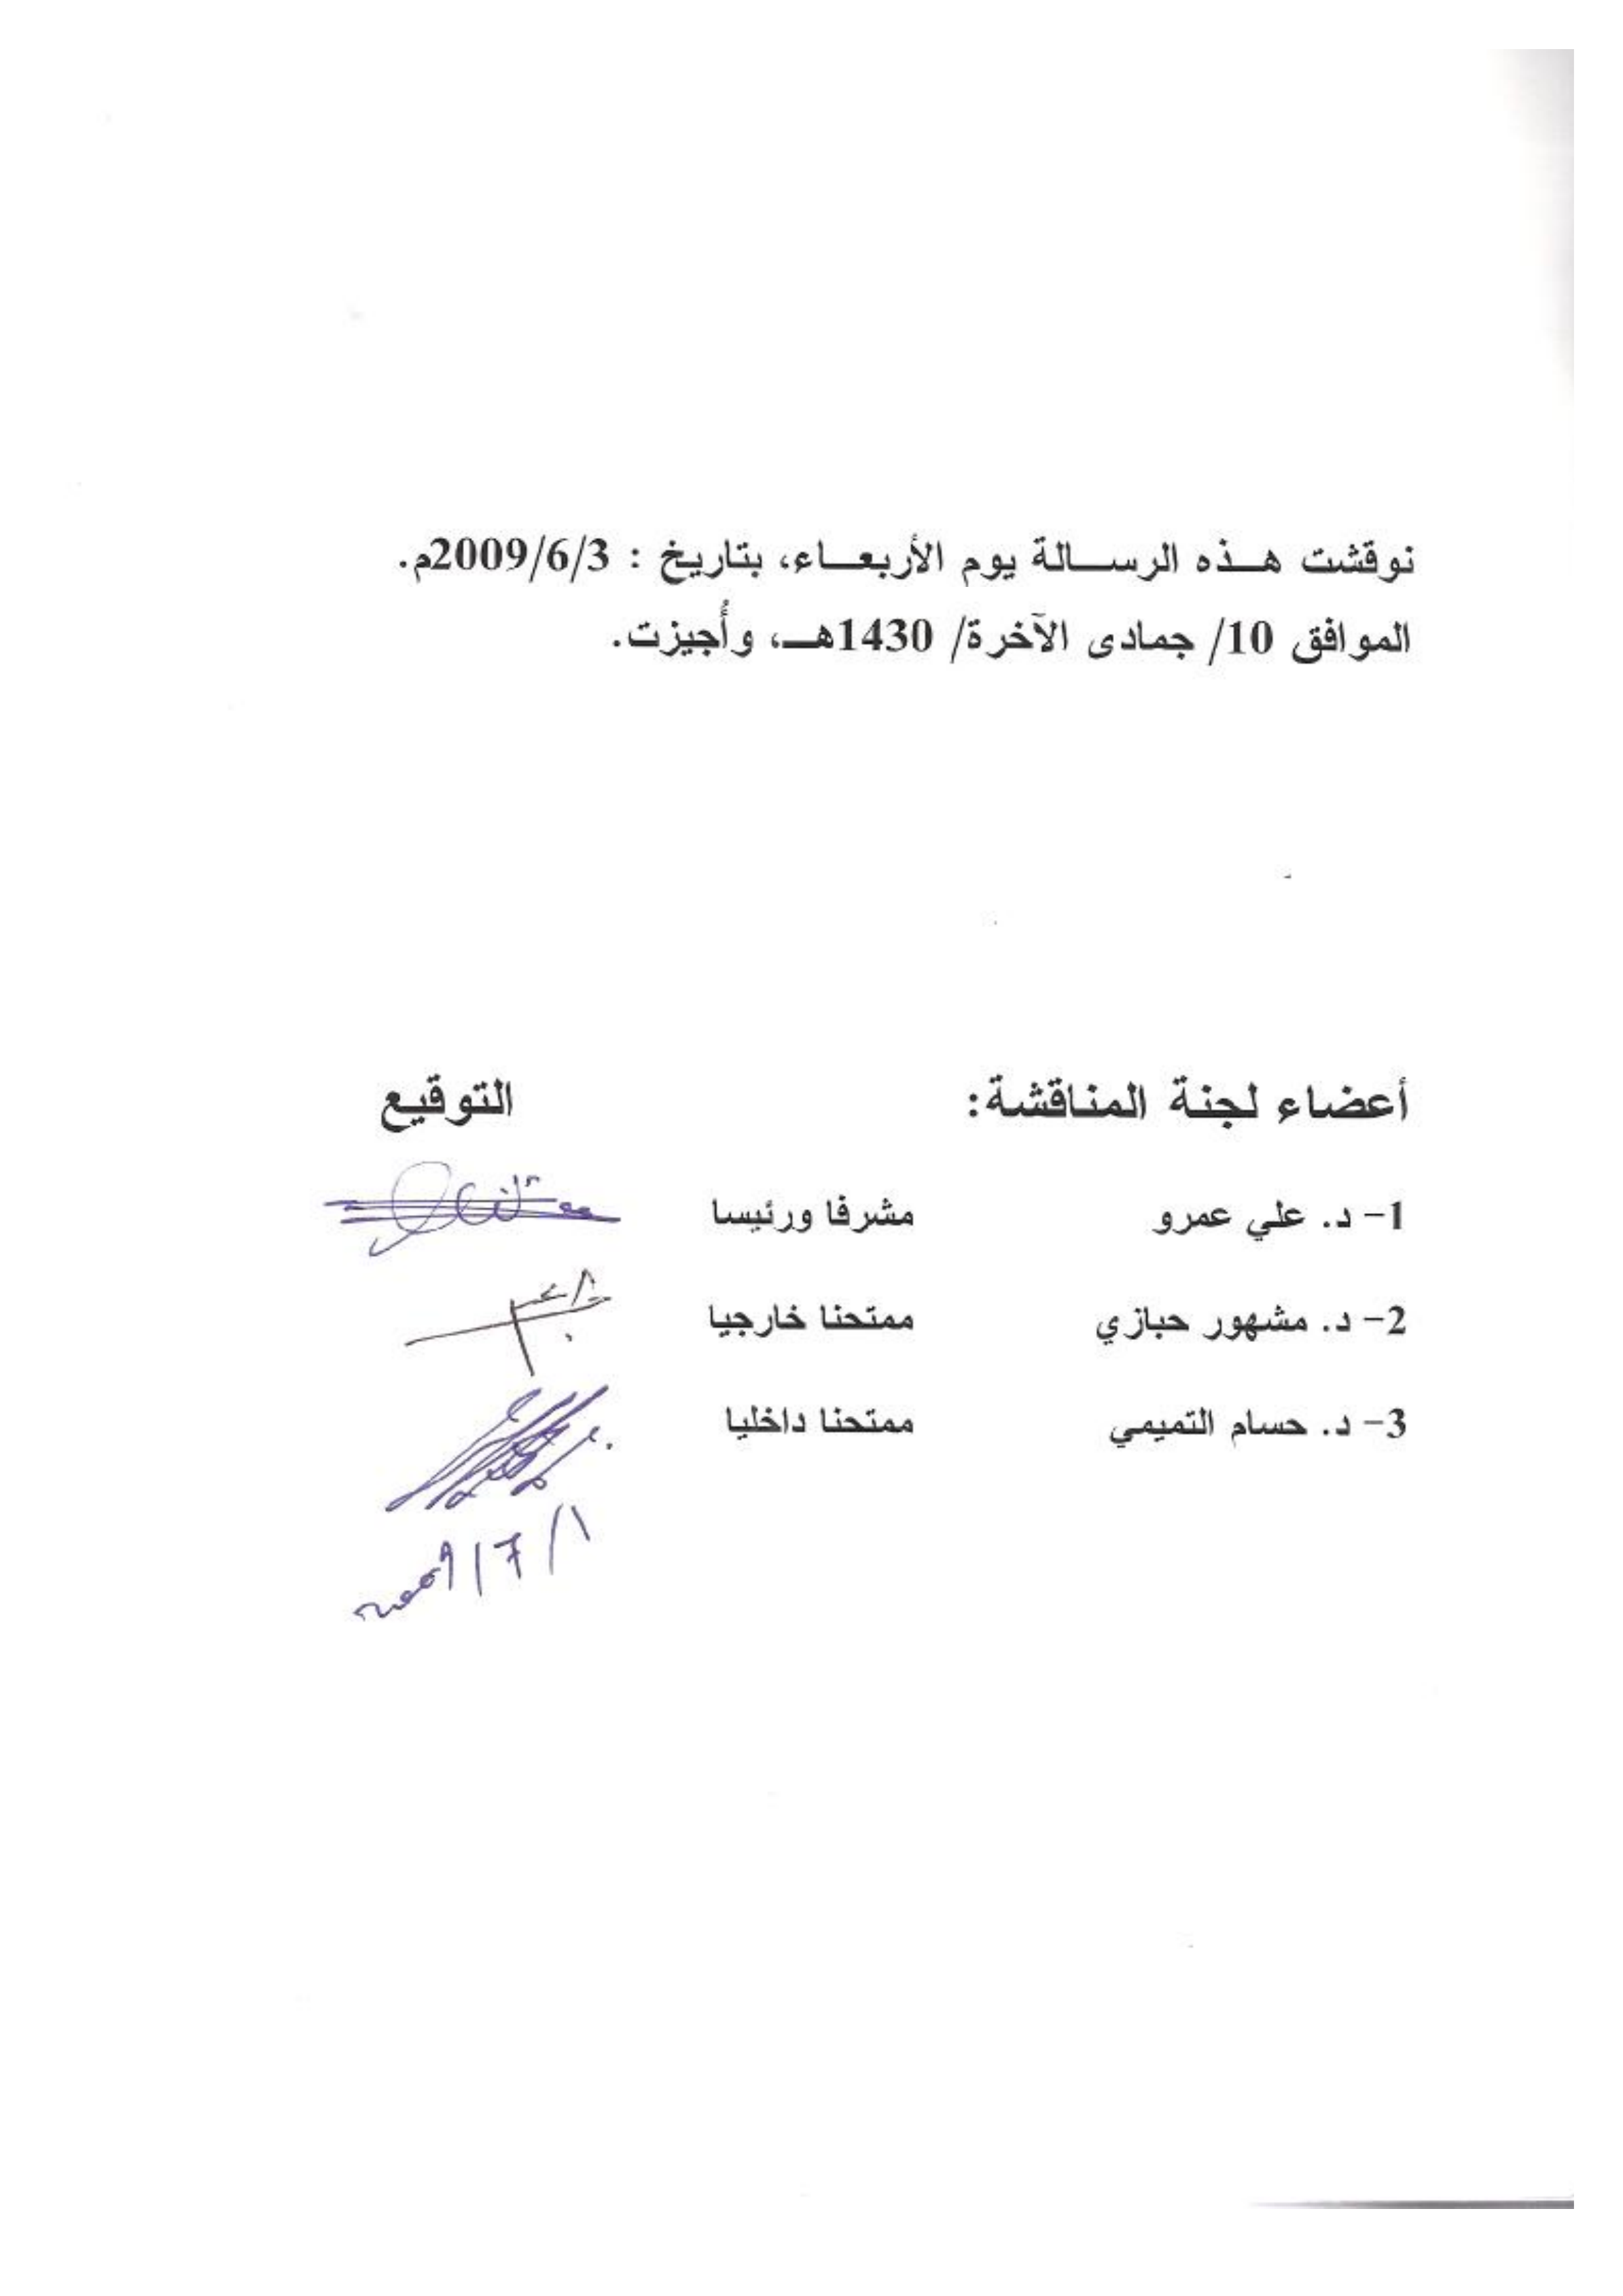 نوقشت هذه الرسالة يوم الأربعاء، بتاريخ : 2009/6/3م.
الموافق 10/ جمادى الآخرة/ 1430هـ، وأُجيزت.
أعضاء لجنة المناقشة: التوقيع
1- د. علي عمرو مشرفا ورئيسا
2- د. مشهور حبازي ممتحنا خارجيا
3- د. حسام التميمي ممتحنا داخليا